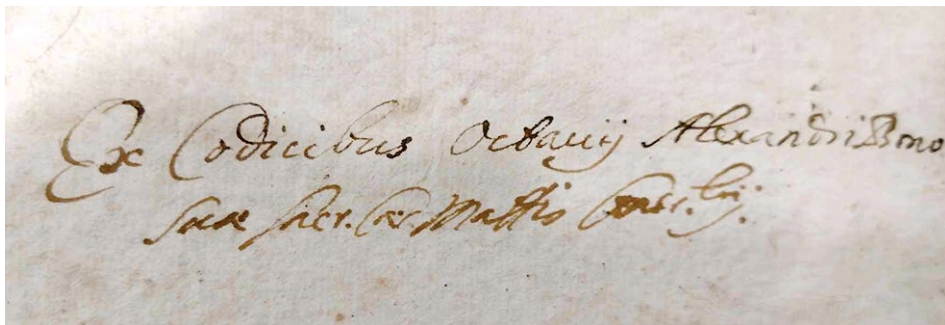 Ex Codicibus Octavij Alexandri Bono
Suæ Sacr. Cæs. Mattis Cons.rij.